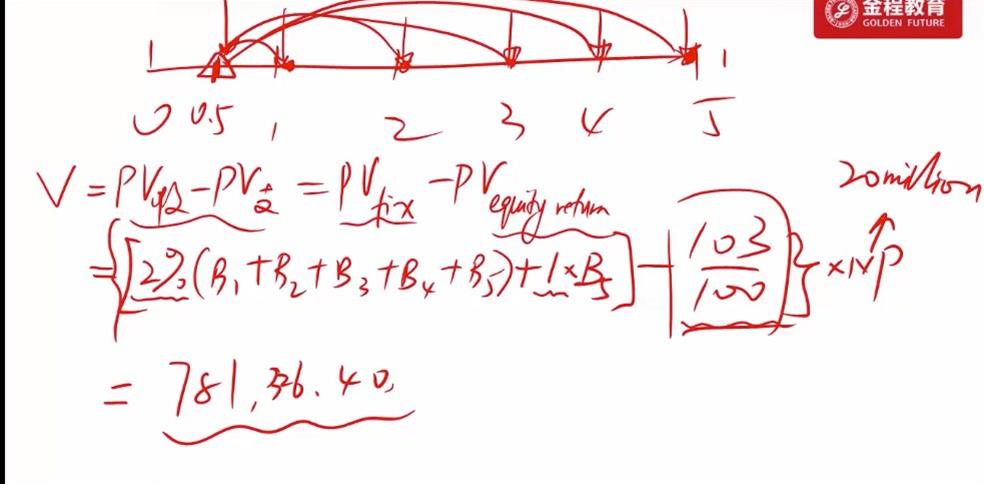 金程教育
GOLDEN FUTURE
1 1
0 0.5 1 2 3 4 5
V = PV收 - PV支 = PV fix - PV equity return
20 million
= {[2%(B1 + B2 + B3 + B4 + B5) + 1×B5] - 103/100} × NP
= 781,